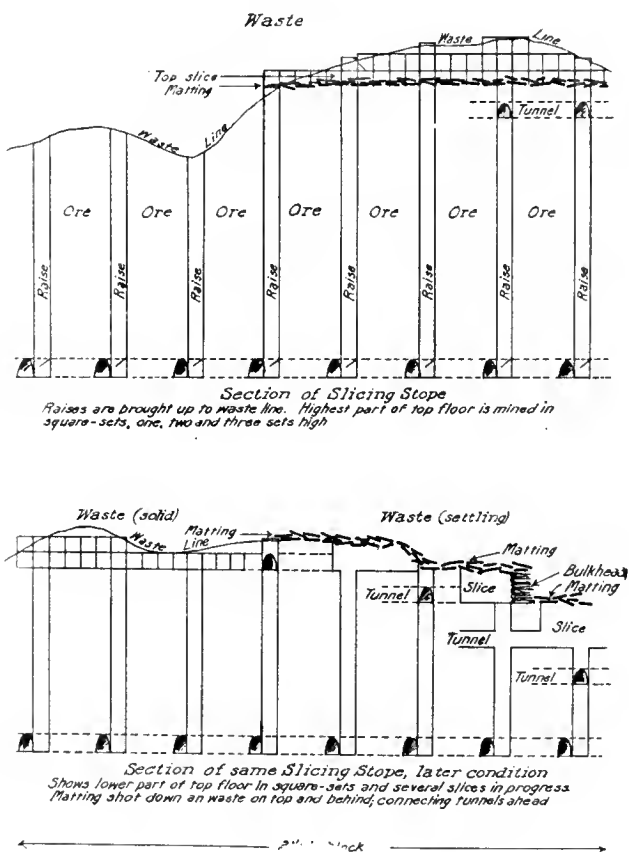 Waste
Waste Line
Top slice
Matting
Tunnel
Waste Line
Ore Ore Ore Ore Ore Ore Ore
Raise Raise Raise Raise Raise Raise Raise Raise
Section of Slicing Stope
Raises are brought up to waste line. Highest part of top floor is mined in
square-sets, one, two and three sets high
Waste (solid)
Matting
Waste (settling)
Waste Line
Matting
Bulkhead
Matting
Tunnel
Slice
Tunnel
Slice
Tunnel
Section of same Slicing Stope, later condition
Shows lower part of top floor in square-sets and several slices in progress.
Matting shot down an waste on top and behind; connecting tunnels ahead